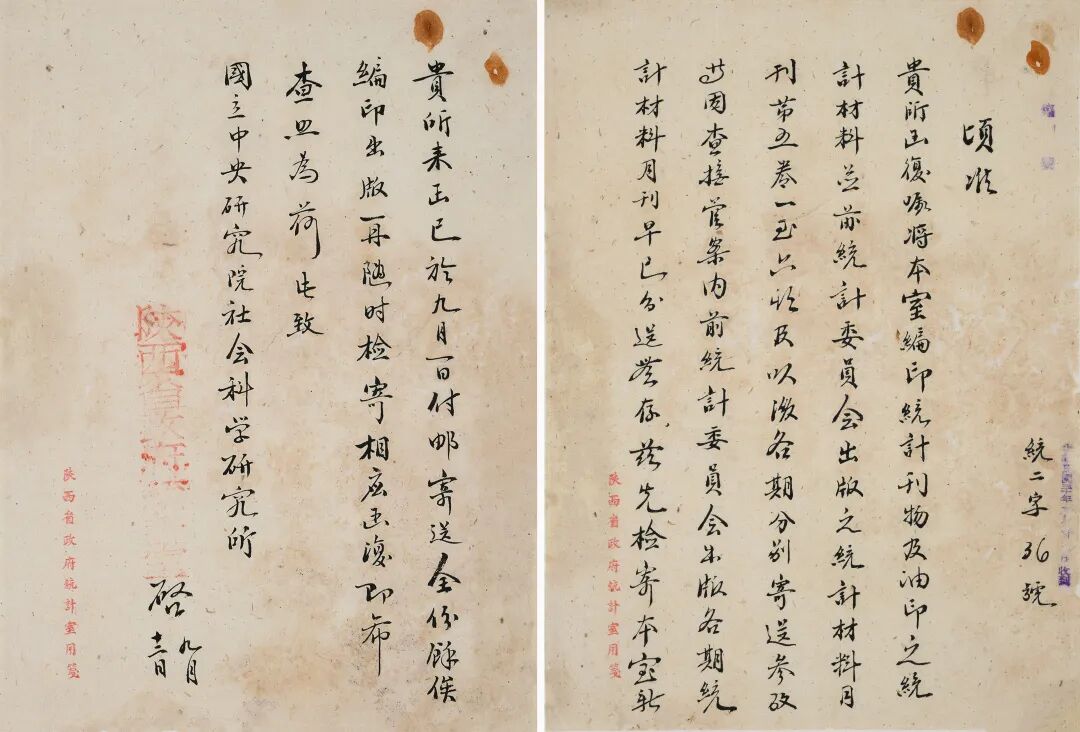 統二字36號
收到
頃准
貴所函復嘱将本室編印統計刊物及油印之統
計材料並前統計委員会出版之統計材料月
刊第五卷一至六期及以後各期分别寄送参攷
等因查接管案内前統計委員会出版各期統
計材料月刊早已分送無存兹先检寄本室新
陝西省政府統計室用箋
貴所来函已於九月一日付邮寄送全份餘俟
編印出版再随时检寄相应函復即希
查照為荷此致
國立中央研究院社会科学研究所
陝西省政府統計室
啓
九月
十二日
陝西省政府統計室用箋